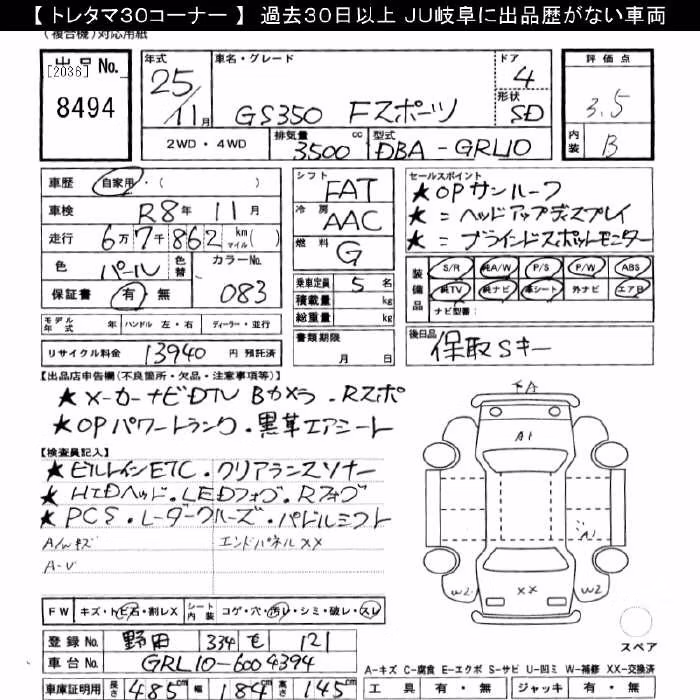 【 トレタマ30コーナー 】 過去30日以上 JU岐阜に出品歴がない車両
(複合機)対応用紙
出品No. [2036] 8494
年式 25/11月
車名・グレード GS350 Fスポーツ
ドア 4
形状 SD
評価点 3.5
内装 B
2WD・4WD
排気量 3500 cc
型式 DBA-GRL10
車歴 自家用・( )
車検 R8年 11月
走行 6万7千862 km マイル( )
色 パール 色替
カラーNo. 083
保証書 有・無
モデル年式 年 ハンドル 左・右 ディーラー・並行
リサイクル料金 13940 円 預託済
シフト FAT
冷房 AAC
燃料 G
乗車定員 5 名
積載量 kg
総重量 kg
書類期限 月 日
セールスポイント
★OPサンルーフ
★=ヘッドアップディスプレイ
★=ブラインドスポットモニター
装備品 S/R 純A/W P/S P/W ABS
純TV 純ナビ 革シート 外ナビ エアB
ナビ型番:
後日品 保取Sキー
【出品店申告欄(不良箇所・欠品・注意事項等)】
★メーカーナビDTV Bカメラ・Rスポ
★OPパワートランク・黒革エアシート
【検査員記入】
★ビルトインETC・クリアランスソナー
★HIDヘッド・LEDフォグ・Rフォグ
★PCS・レーダークルーズ・パドルシフト
A/Wキズ エンドパネルXX
A-U
FA
A1
A1
W2 XX W2
スペア
FW キズ・ト石・割レX シート内装 コゲ・穴・汚レ・シミ・破レ・スレ
登録No. 野田 334 も 121
車台No. GRL10-6004394
車庫証明用 長さ 485cm 幅 184cm 高さ 145cm
A-キズ C-腐食 E-エクボ S-サビ U-凹ミ W-補修 XX-交換済
工具 有・無 ジャッキ 有・無